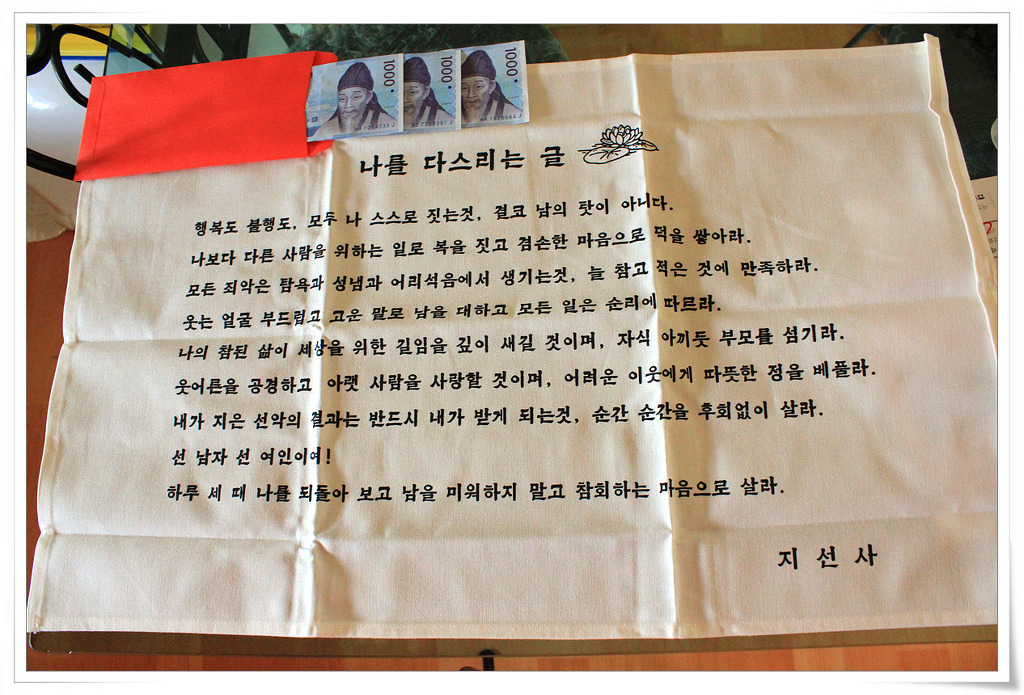 1000
1000
1000
나를 다스리는 글
행복도 불행도, 모두 나 스스로 짓는것, 결코 남의 탓이 아니다.
나보다 다른 사람을 위하는 일로 복을 짓고 겸손한 마음으로 덕을 쌓아라.
모든 죄악은 탐욕과 성냄과 어리석음에서 생기는것, 늘 참고 적은 것에 만족하라.
웃는 얼굴 부드럽고 고운 말로 남을 대하고 모든 일은 순리에 따르라.
나의 참된 삶이 세상을 위한 길임을 깊이 새길 것이며, 자식 아끼듯 부모를 섬기라.
웃어른을 공경하고 아랫 사람을 사랑할 것이며, 어려운 이웃에게 따뜻한 정을 베풀라.
내가 지은 선악의 결과는 반드시 내가 받게 되는것, 순간 순간을 후회없이 살라.
선 남자 선 여인이여!
하루 세 때 나를 되돌아 보고 남을 미워하지 말고 참회하는 마음으로 살라.
지 선 사